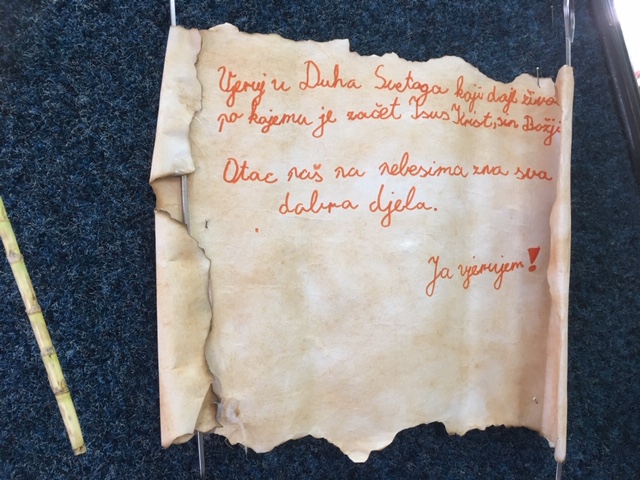 Vjeruj u Duha Svetoga koji daje život
po kojemu je začet Isus Krist, sin Božji
Otac naš na nebesima zna sva
dobra djela.
Ja vjerujem!